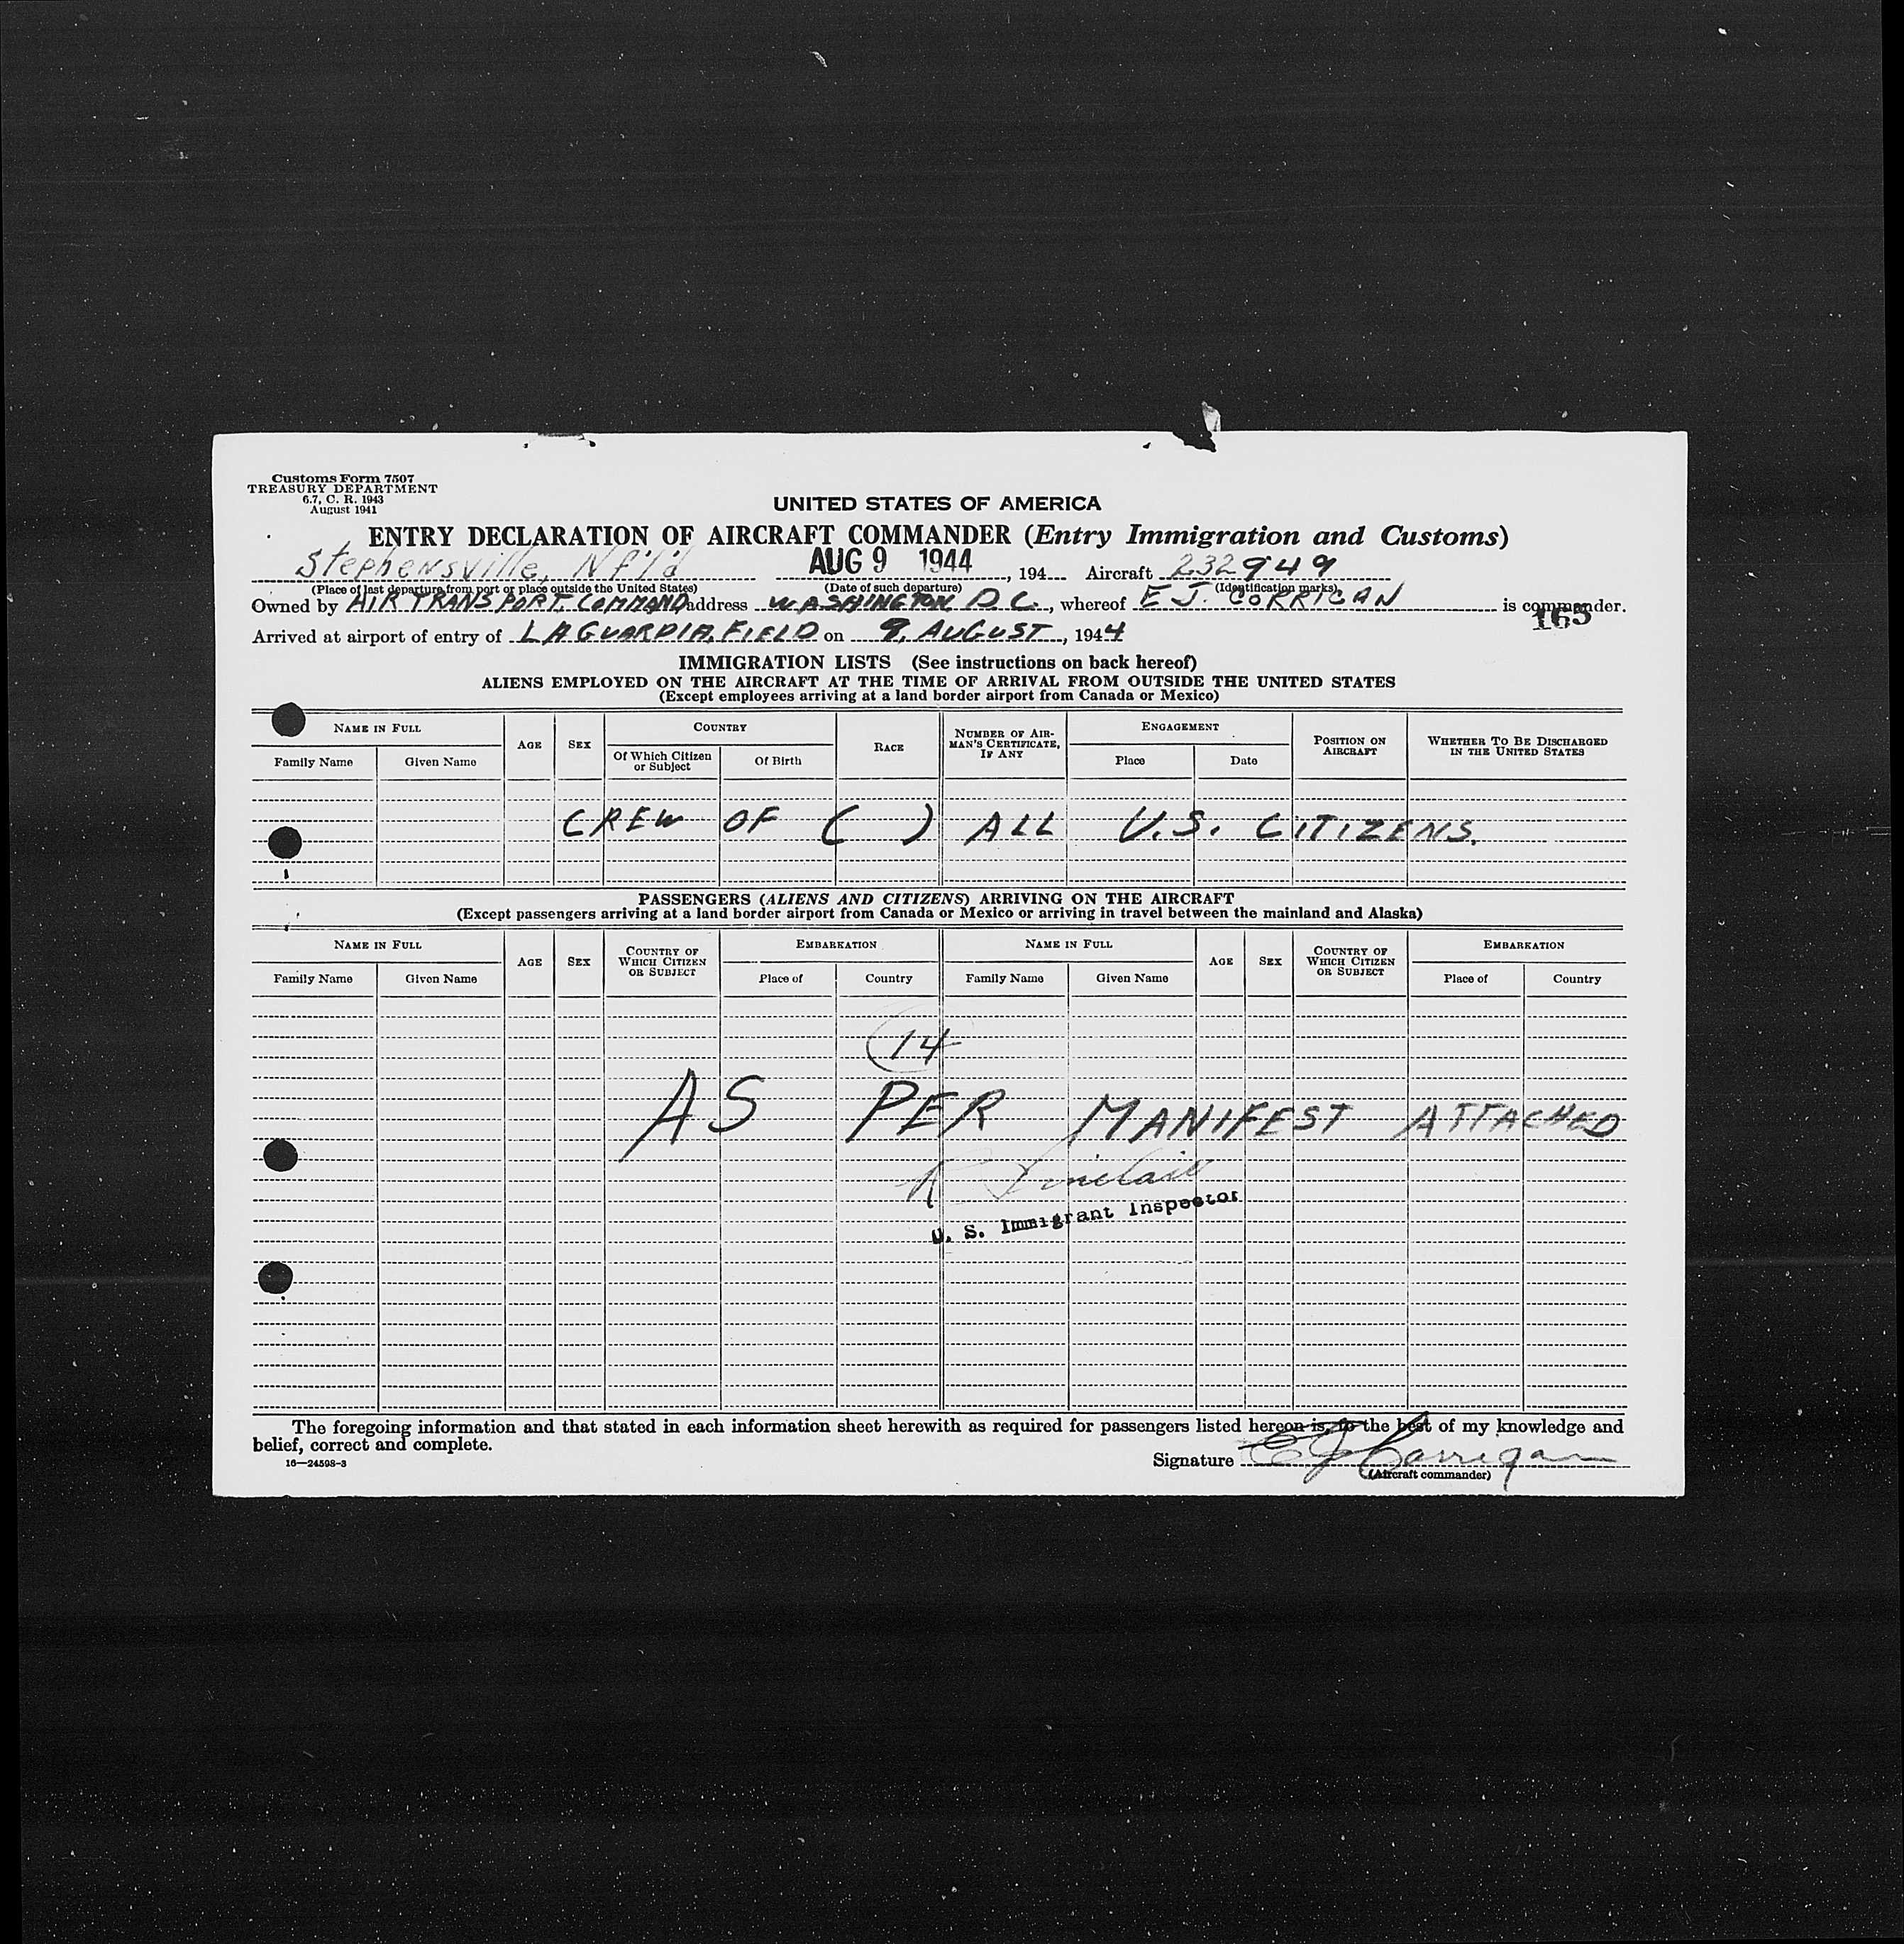 Customs Form 7507
TREASURY DEPARTMENT
6.7, C. R. 1943
August 1941
UNITED STATES OF AMERICA
ENTRY DECLARATION OF AIRCRAFT COMMANDER (Entry Immigration and Customs)
Stephensville, Nfld AUG 9 1944, 194 Aircraft 232949
(Place of last departure from port or place outside the United States) (Date of such departure) (Identification marks)
Owned by AIR TRANSPORT COMMAND address WASHINGTON D C, whereof E J. CORRIGAN is commander.
165
Arrived at airport of entry of LAGUARDIA FIELD on 9, AUGUST, 1944
IMMIGRATION LISTS (See instructions on back hereof)
ALIENS EMPLOYED ON THE AIRCRAFT AT THE TIME OF ARRIVAL FROM OUTSIDE THE UNITED STATES
(Except employees arriving at a land border airport from Canada or Mexico)
NAME IN FULL AGE SEX COUNTRY RACE NUMBER OF AIRMAN'S CERTIFICATE, IF ANY ENGAGEMENT POSITION ON AIRCRAFT WHETHER TO BE DISCHARGED IN THE UNITED STATES
Family Name Given Name Of Which Citizen or Subject Of Birth Place Date
CREW OF ( ) ALL U.S. CITIZENS.
PASSENGERS (ALIENS AND CITIZENS) ARRIVING ON THE AIRCRAFT
(Except passengers arriving at a land border airport from Canada or Mexico or arriving in travel between the mainland and Alaska)
NAME IN FULL AGE SEX COUNTRY OF WHICH CITIZEN OR SUBJECT EMBARKATION NAME IN FULL AGE SEX COUNTRY OF WHICH CITIZEN OR SUBJECT EMBARKATION
Family Name Given Name Place of Country Family Name Given Name Place of Country
14
AS PER MANIFEST ATTACHED
R Sinclair
U. S. Immigrant Inspector
The foregoing information and that stated in each information sheet herewith as required for passengers listed hereon is, to the best of my knowledge and
belief, correct and complete.
16—24598-3
Signature E J Corrigan
(Aircraft commander)